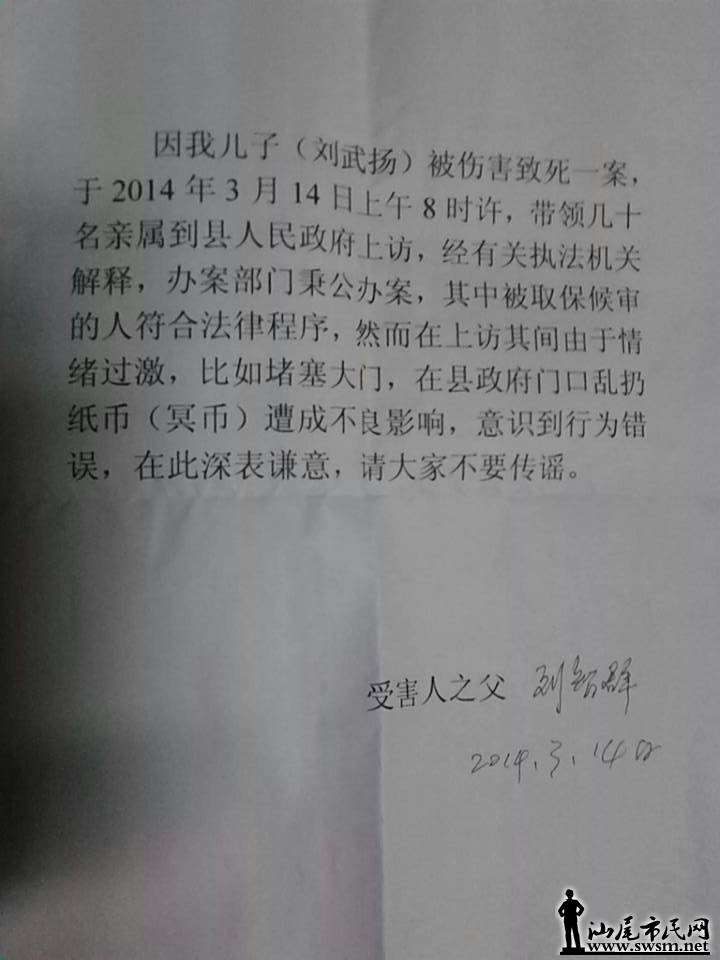 因我儿子（刘武扬）被伤害致死一案，
于 2014 年 3 月 14 日上午 8 时许，带领几十
名亲属到县人民政府上访，经有关执法机关
解释，办案部门秉公办案，其中被取保候审
的人符合法律程序，然而在上访其间由于情
绪过激，比如堵塞大门，在县政府门口乱扔
纸币（冥币）遭成不良影响，意识到行为错
误，在此深表谦意，请大家不要传谣。
受害人之父 刘智群
2014.3.14日
汕尾市民网
www.swsm.net